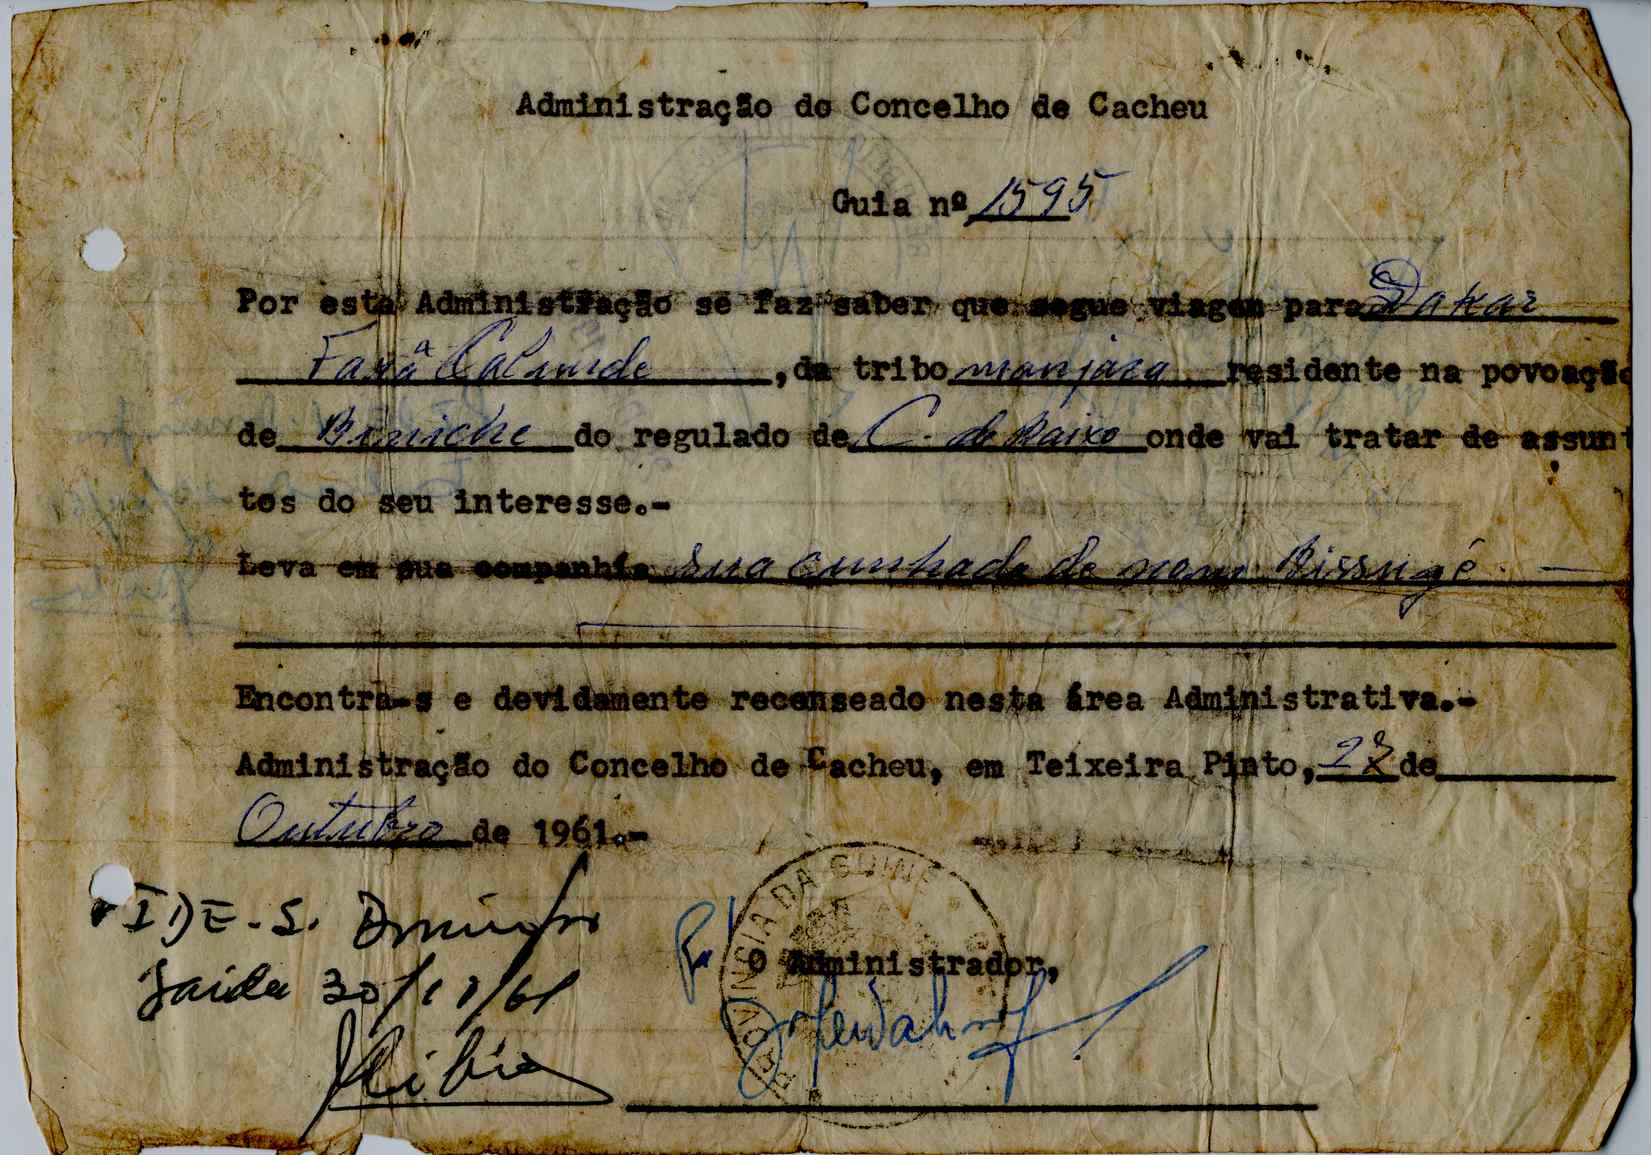 Administração do Concelho de Cacheu
Guia nº 1595
Por esta Administração se faz saber que segue viagem para Dakar
, da tribo manjaca residente na povoação
de Biniche do regulado de C. de Baixo onde vai tratar de assun
tos do seu interesse.-
Leva em sua companhia sua cunhada de nome Bissugé. —
Encontra-s e devidamente recenseado nesta área Administrativa.-
Administração do Concelho de Cacheu, em Teixeira Pinto, de
Outubro de 1961.-
PROVINCIA DA GUINÉ
IDE - S. Domingos
Saida 30/10/61
O Administrador,